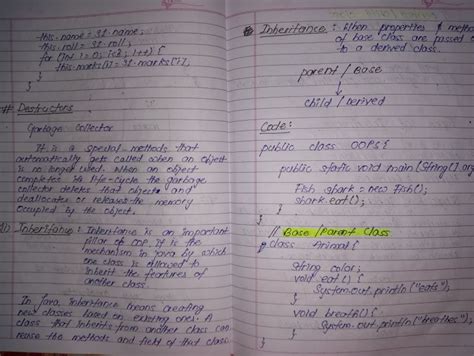 this.name = s1.name;
this.roll = s1.roll;
for (int i=0; i<3; i++) {
this.marks[i] = s1.marks[i];
}
}
# Destructors
Garbage Collector
It is a special methods that
automatically gets called when an object
is no longer used. When an object
completes its life-cycle the garbage
collector deletes that object and
deallocates or releases the memory
occupied by the object.
Inheritance : Inheritance is an important
pillar of OOP. It is the
mechanism in java by which
one class is allowed to
inherit the features of
another class.
In Java, Inheritance means creating
new classes based on existing ones. A
class that inherits from another class can
reuse the methods and field of that class
Inheritance : When properties & method
of base class are passed
to a derived class.
parent / Base
↓
child / Derived
Code :
public class OOPS {
public static void main (String[] arg
Fish shark = new Fish();
shark.eat();
}
// Base / Parent Class
class Animal {
String color;
void eat() {
System.out.println ("eats");
}
void breath() {
System.out.println ("breathes")
}